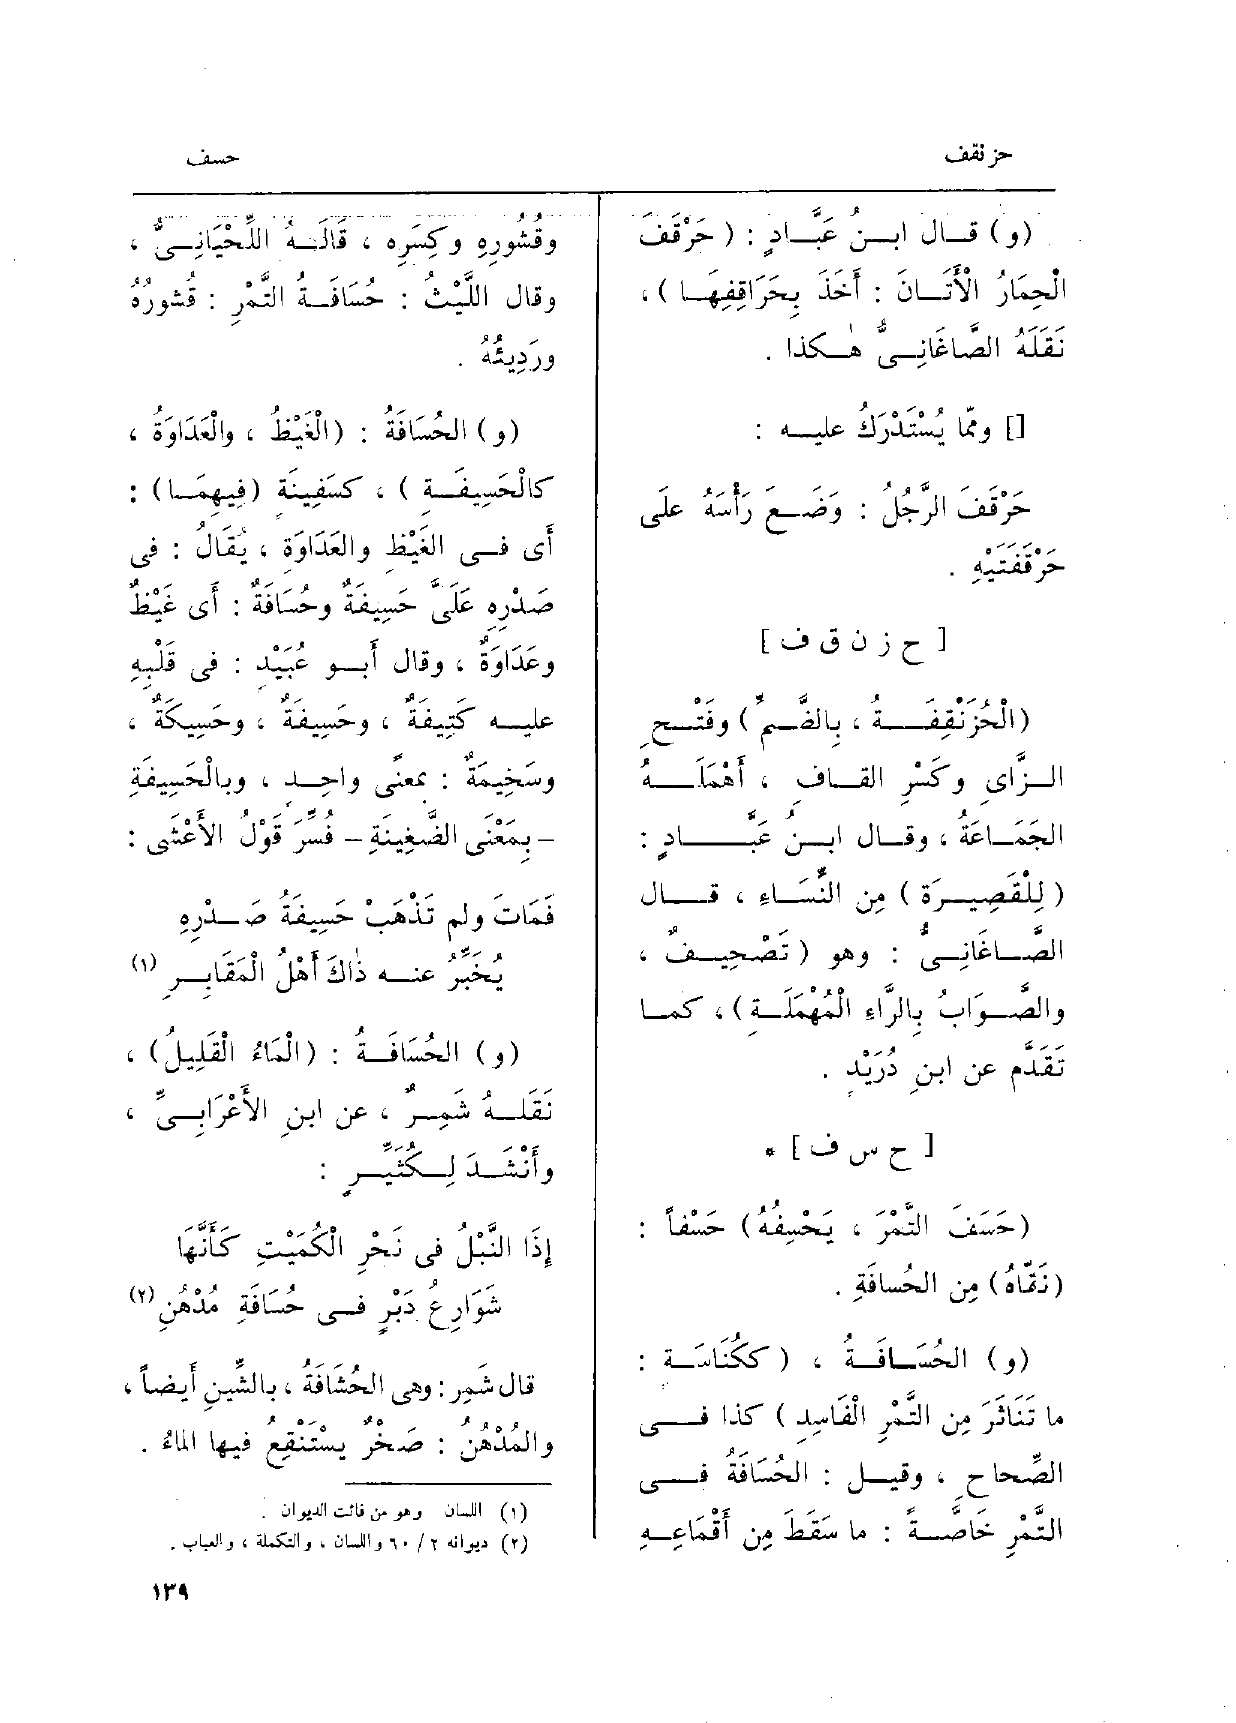 حزنقف
حسف
(و) قـال ابـنُ عَبَّـادٍ : (حَرْقَفَ
الْحِمَارُ الْأَتَـانَ : أَخَذَ بِحَرَاقِفِهَـا) ،
نَقَلَهُ الصَّاغَانِـىُّ هٰـكذا .
[] ومّما يُسْتَدْرَكُ عليـه :
حَرْقَفَ الرَّجُلُ : وَضَـعَ رَأْسَهُ على
حَرْقَفَتَيْهِ .
[ ح ز ن ق ف ]
(الْحُزَنْقِفَــةُ ، بالضَّـمِّ) وفَتْـحِ
الـزَّاى وكَسْرِ القـاف ، أَهْمَلَــهُ
الجَمَـاعَةُ ، وقـال ابـنُ عَبَّــادٍ :
(لِلْقَصِيـرَةِ) مِن النِّسَـاءِ ، قــال
الصَّـاغَانِـىُّ : وهو (تَصْحِيـفٌ ،
والصَّـوَابُ بِالرَّاءِ الْمُهْمَلَـةِ) ، كمـا
تَقَدَّم عن ابنِ دُرَيْدٍ .
[ ح س ف ] *
(حَسَفَ التَّمْرَ ، يَحْسِفُهُ) حَسْفاً :
(نَقَّاهُ) مِن الحُسافَةِ .
(و) الحُسَـافَـةُ ، (ككُنَاسَـة :
ما تَنَاثَرَ مِن التَّمْرِ الْفَاسِدِ) كذا فــى
الصِّحاح ، وقيـل : الحُسَافَةُ فــى
التَّمْرِ خَاصَّـةً : ما سَقَطَ مِن أَقْمَاعِـهِ
وقُشُورِهِ وكِسَرِه ، قَالَـهُ اللِّحْيَانِـىُّ ،
وقال اللَّيْثُ : حُسَافَـةُ التَّمْرِ : قُشورُهُ
ورَدِيئُهُ .
(و) الحُسَافَةُ : (الْغَيْظُ ، والْعَدَاوَةُ ،
كالْحَسِيفَـةِ) ، كسَفِينَةٍ (فِيهِمَـا) :
أَى فـى الغَيْظِ والعَدَاوَةِ ، يُقَالُ : فى
صَدْرِهِ عَلَىَّ حَسِيفَةٌ وحُسَافَةٌ : أَى غَيْظٌ
وعَدَاوَةٌ ، وقال أَبـو عُبَيْد : فى قَلْبِهِ
عليـه كَتِيفَةٌ ، وحَسِيفَةٌ ، وحَسِيكَةٌ ،
وسَخِيمَةٌ : بمعنًى واحِـد ، وبالْحَسِيفَةِ
– بِمَعْنَى الضَّغِينَةِ – فُسِّرَ قَوْلُ الأَعْشَى :
فَمَاتَ ولم تَذْهَبْ حَسِيفَةُ صَـدْرِهِ
يُخَبِّرُ عنـه ذٰاكَ أَهْلُ الْمَقَابِـرِ (١)
(و) الحُسَافَـةُ : (الْمَاءُ الْقَلِيلُ) ،
نَقَلَـهُ شَمِـرٌ ، عن ابنِ الأَعْرَابِـىِّ ،
وأَنْشَـدَ لِـكُثَيِّـرٍ :
إِذَا النَّبْلُ فى نَحْرِ الْكُمَيْتِ كَأَنَّهَا
شَوَارِعُ دَبْرٍ فـى حُسَافَةِ مُدْهُنِ (٢)
قال شَمِر : وهى الحُشَافَةُ ، بالشِّينِ أَيضاً ،
والمُدْهُنُ : صَخْرٌ يَسْتَنْقِعُ فيها الماءُ .
(١) اللسان وهو من فائت الديوان .
(٢) ديوانه ٢ / ٦٠ واللسان ، والتكملة ، والعباب .
١٣٩